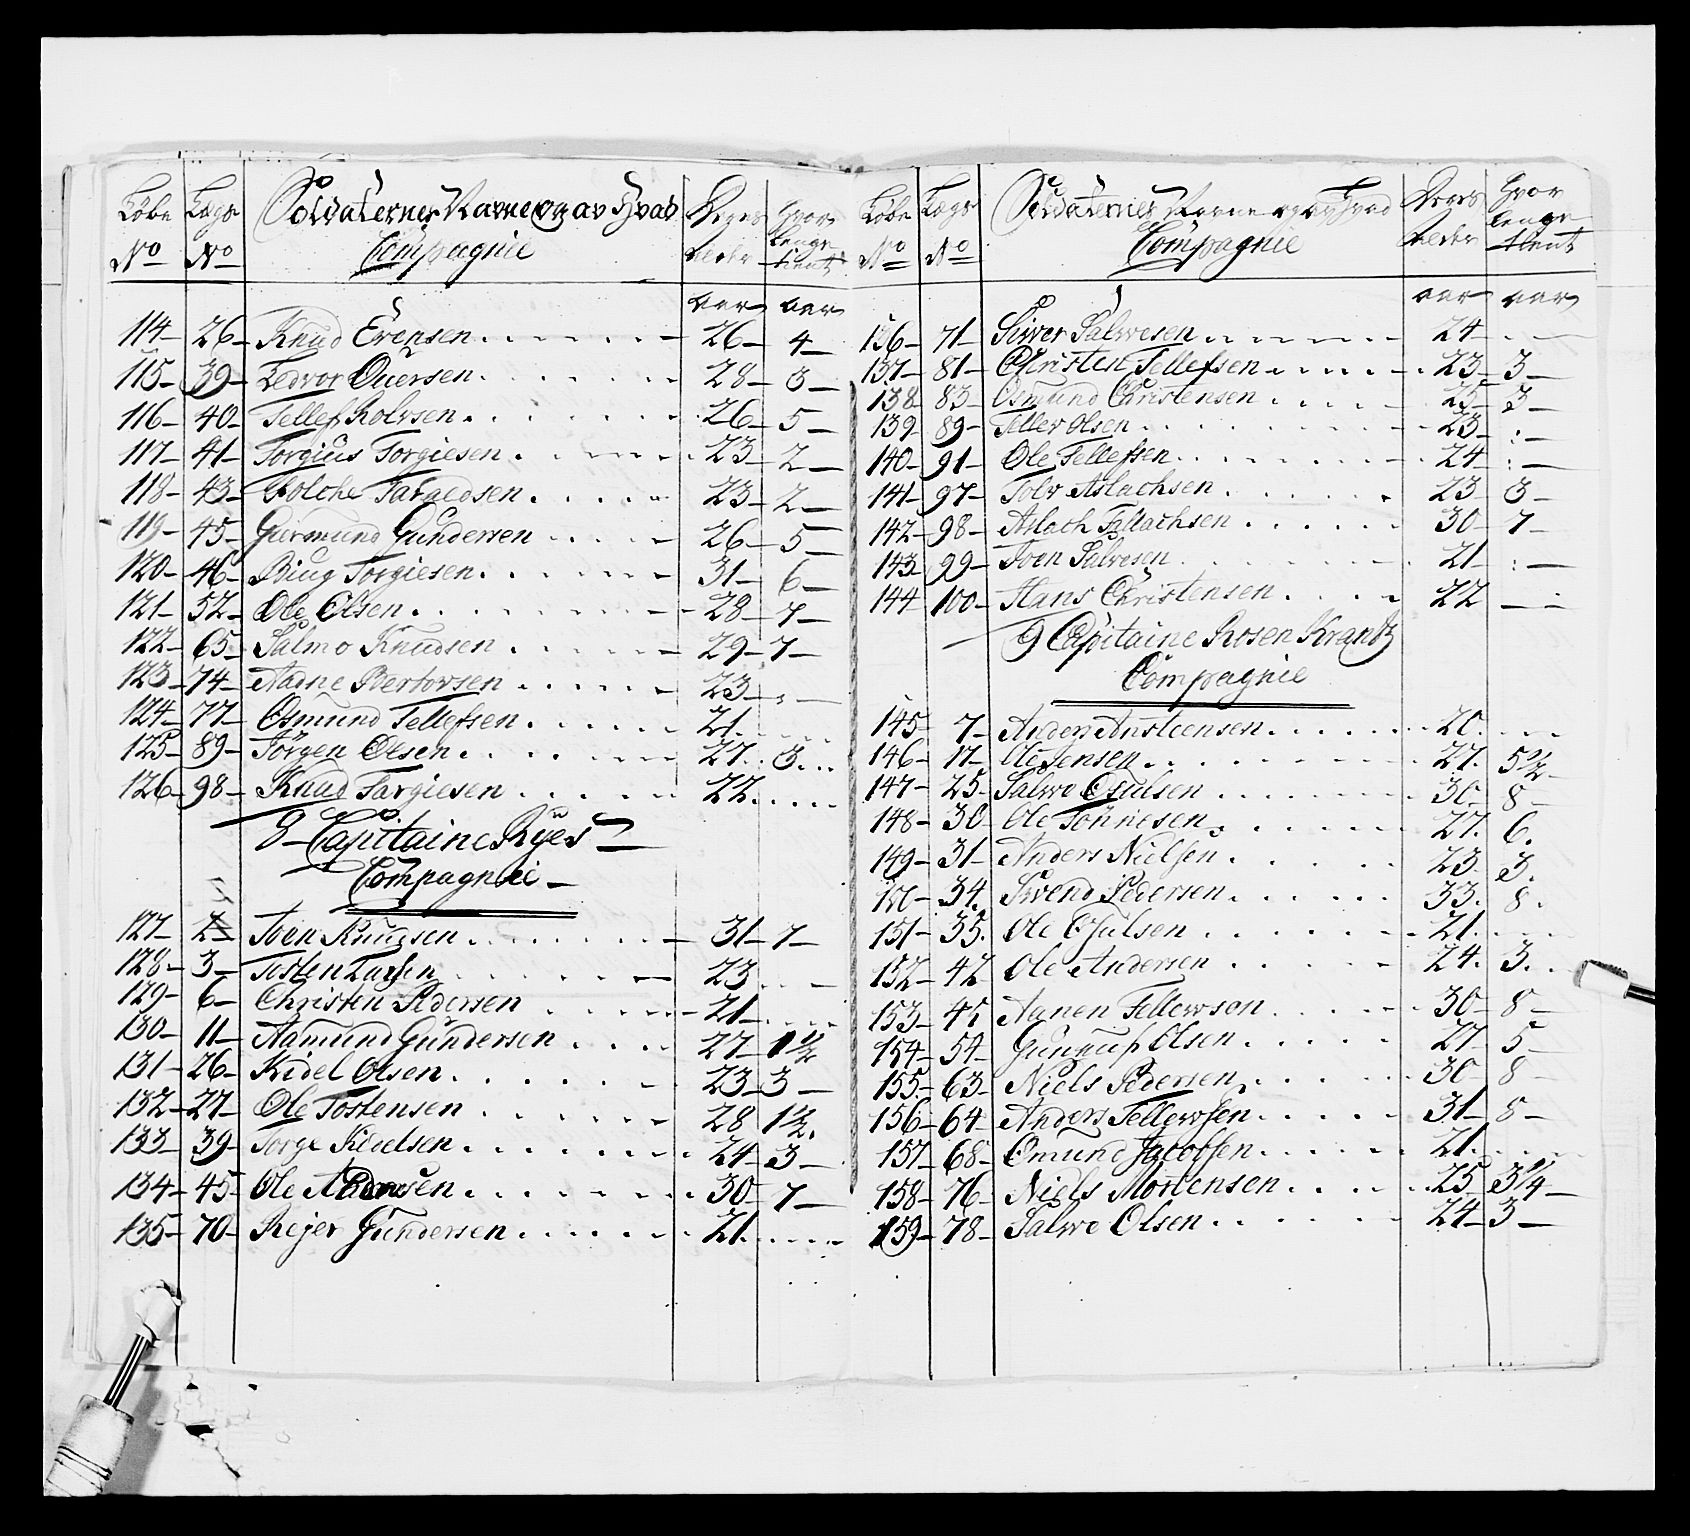 Løbe Lægs Soldaternes Navne og av Hvad Deres Hvor
No No Compagnie Alder lenge tient
aar aar
114 - 26 - Knud Evensen 26 - 4 -
115 - 39 - Ledvor Ouersen 28 - 3 -
116 - 40 - Tellef Rolvsen 26 - 5 -
117 - 41 - Torgius Torgiesen 23 - 2 -
118 - 43 - Folche Taraldsen 23 - 2 -
119 - 45 - Giermund Gundersen 26 - 5 -
120 - 46 - Biug Torgiesen 31 - 6 -
121 - 52 - Ole Olsen 28 - 7 -
122 - 65 - Salmo Knudsen 29 - 7 -
123 - 74 - Aadne Bertovsen 23 -
124 - 77 - Osmund Tellefsen 21
125 - 89 - Jörgen Olsen 27 3
126 - 98 - Knud Targiesen 22
8 - Capitaine Ryes
Compagnie -
127 - 2 - Iven Knudsen 31 - 7 -
128 - 3 - Tosten Larsen 23
129 - 6 - Christen Pedersen 21 -
130 - 11 - Aamund Gundersen 27 - 1 1/2
131 - 26 - Kidel Olsen 23 - 3 -
132 - 27 - Ole Tostensen 28 1 1/2
133 - 39 - Torge Kidelsen 24 - 3 -
134 - 45 - Ole Andersen 30 - 7 -
135 - 70 - Rejer Gundersen 21
Løbe Lægs Soldaternes Navne og av Hvad Deres Hvor
No No Compagnie Alder lenge tient
aar aar
136 - 71 - Siwer Salwesen 24
137 - 81 - Christen Tellefsen 23 - 3 -
138 83 - Osmund Christensen 25 3 -
139 - 89 - Tellev Olsen 23
140 - 91 - Ole Tellefsen 24
141 - 97 - Tolv Aslachsen 23 3 -
142 - 98 - Aslach Tellachsen 30 - 7 -
143 99 - Iven Salvesen 21
144 100 - Hans Christensen 22
9 Capitaine Rosen Krantz
Compagnie
145 7 - Anders Ansteensen 20
146 - 17 - Ole Jensen 27 5 1/2
147 - 25 Salwe Osulsen 30 8
148 - 30 Ole Tönnesen 27 6
149 - 31 - Anders Nielsen 23 3
150 - 34 Swend Pedersen 33 8
151 - 35 Ole Osulsen 21
152 - 42 Ole Andersen 24 3
153 - 45 Aanen Tellewsen 30 8 -
154 - 54 - Gunnuf Olsen 27 5 -
155 - 63 - Niels Pedersen 30 8
156 - 64 - Anders Tellewsen 31 - 8 -
157 - 68 - Omund Jacobsen 21
158 - 76 - Niels Mortensen 25 3 1/4 -
159 - 78 - Salwe Olsen 24 - 3 -